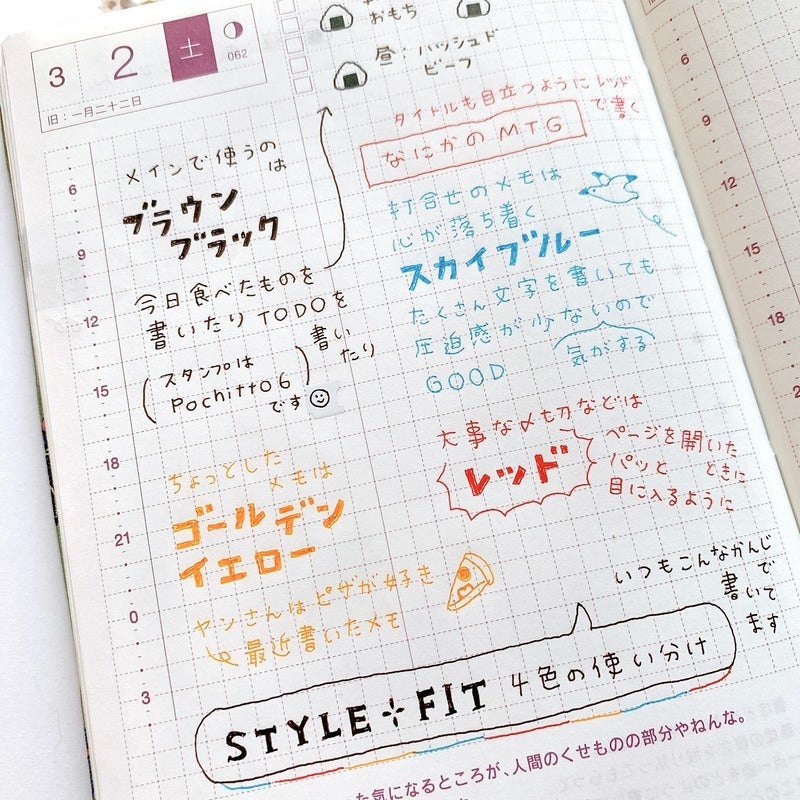 3 2 土
062
旧:一月二十二日
おもち
昼・ハッシュド
ビーフ
メインで使うの
は
ブラウン
ブラック
今日食べたものを
書いたりTODOを
書い
たり
(スタンプは
Pochitto6)
です
ちょっとした
メモは
ゴールデン
イエロー
ヤンさんはピザが好き
最近書いたメモ
タイトルも目立つようにレッド
で書く
なにかのMTG
打合せのメモは
心が落ち着く
スカイブルー
たくさん文字を書いても
圧迫感が少ないので
GOOD
気がする
大事な〆切などは
レッド
ページを開いた
ときに
パッと
目に入るように
いつもこんなかんじ
で
書いて
ます
STYLE FIT 4色の使い分け
6
9
12
15
18
21
0
3
6
9
12
15
18
た気になるところが、人間のくせものの部分やねんな。